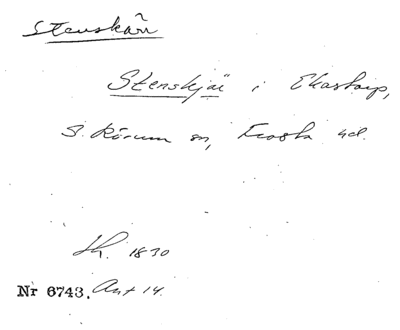 Stenskärr
Stenskjär i Ekastorp,
S. Rörum sn, Frosta hd.
1830
Nr 6743. Art 14.